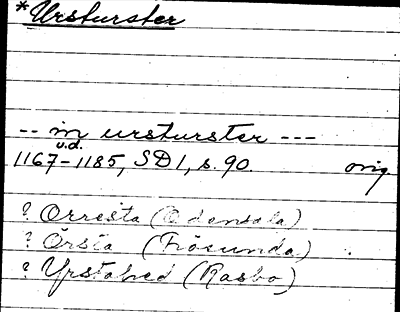 *Ursturster
-- in ursturster ---
u.d.
1167-1185, SD 1, s. 90. orig
? Orresta (Odensala)
? Örsta (Frösunda)
? Yrstahed (Rasbo)